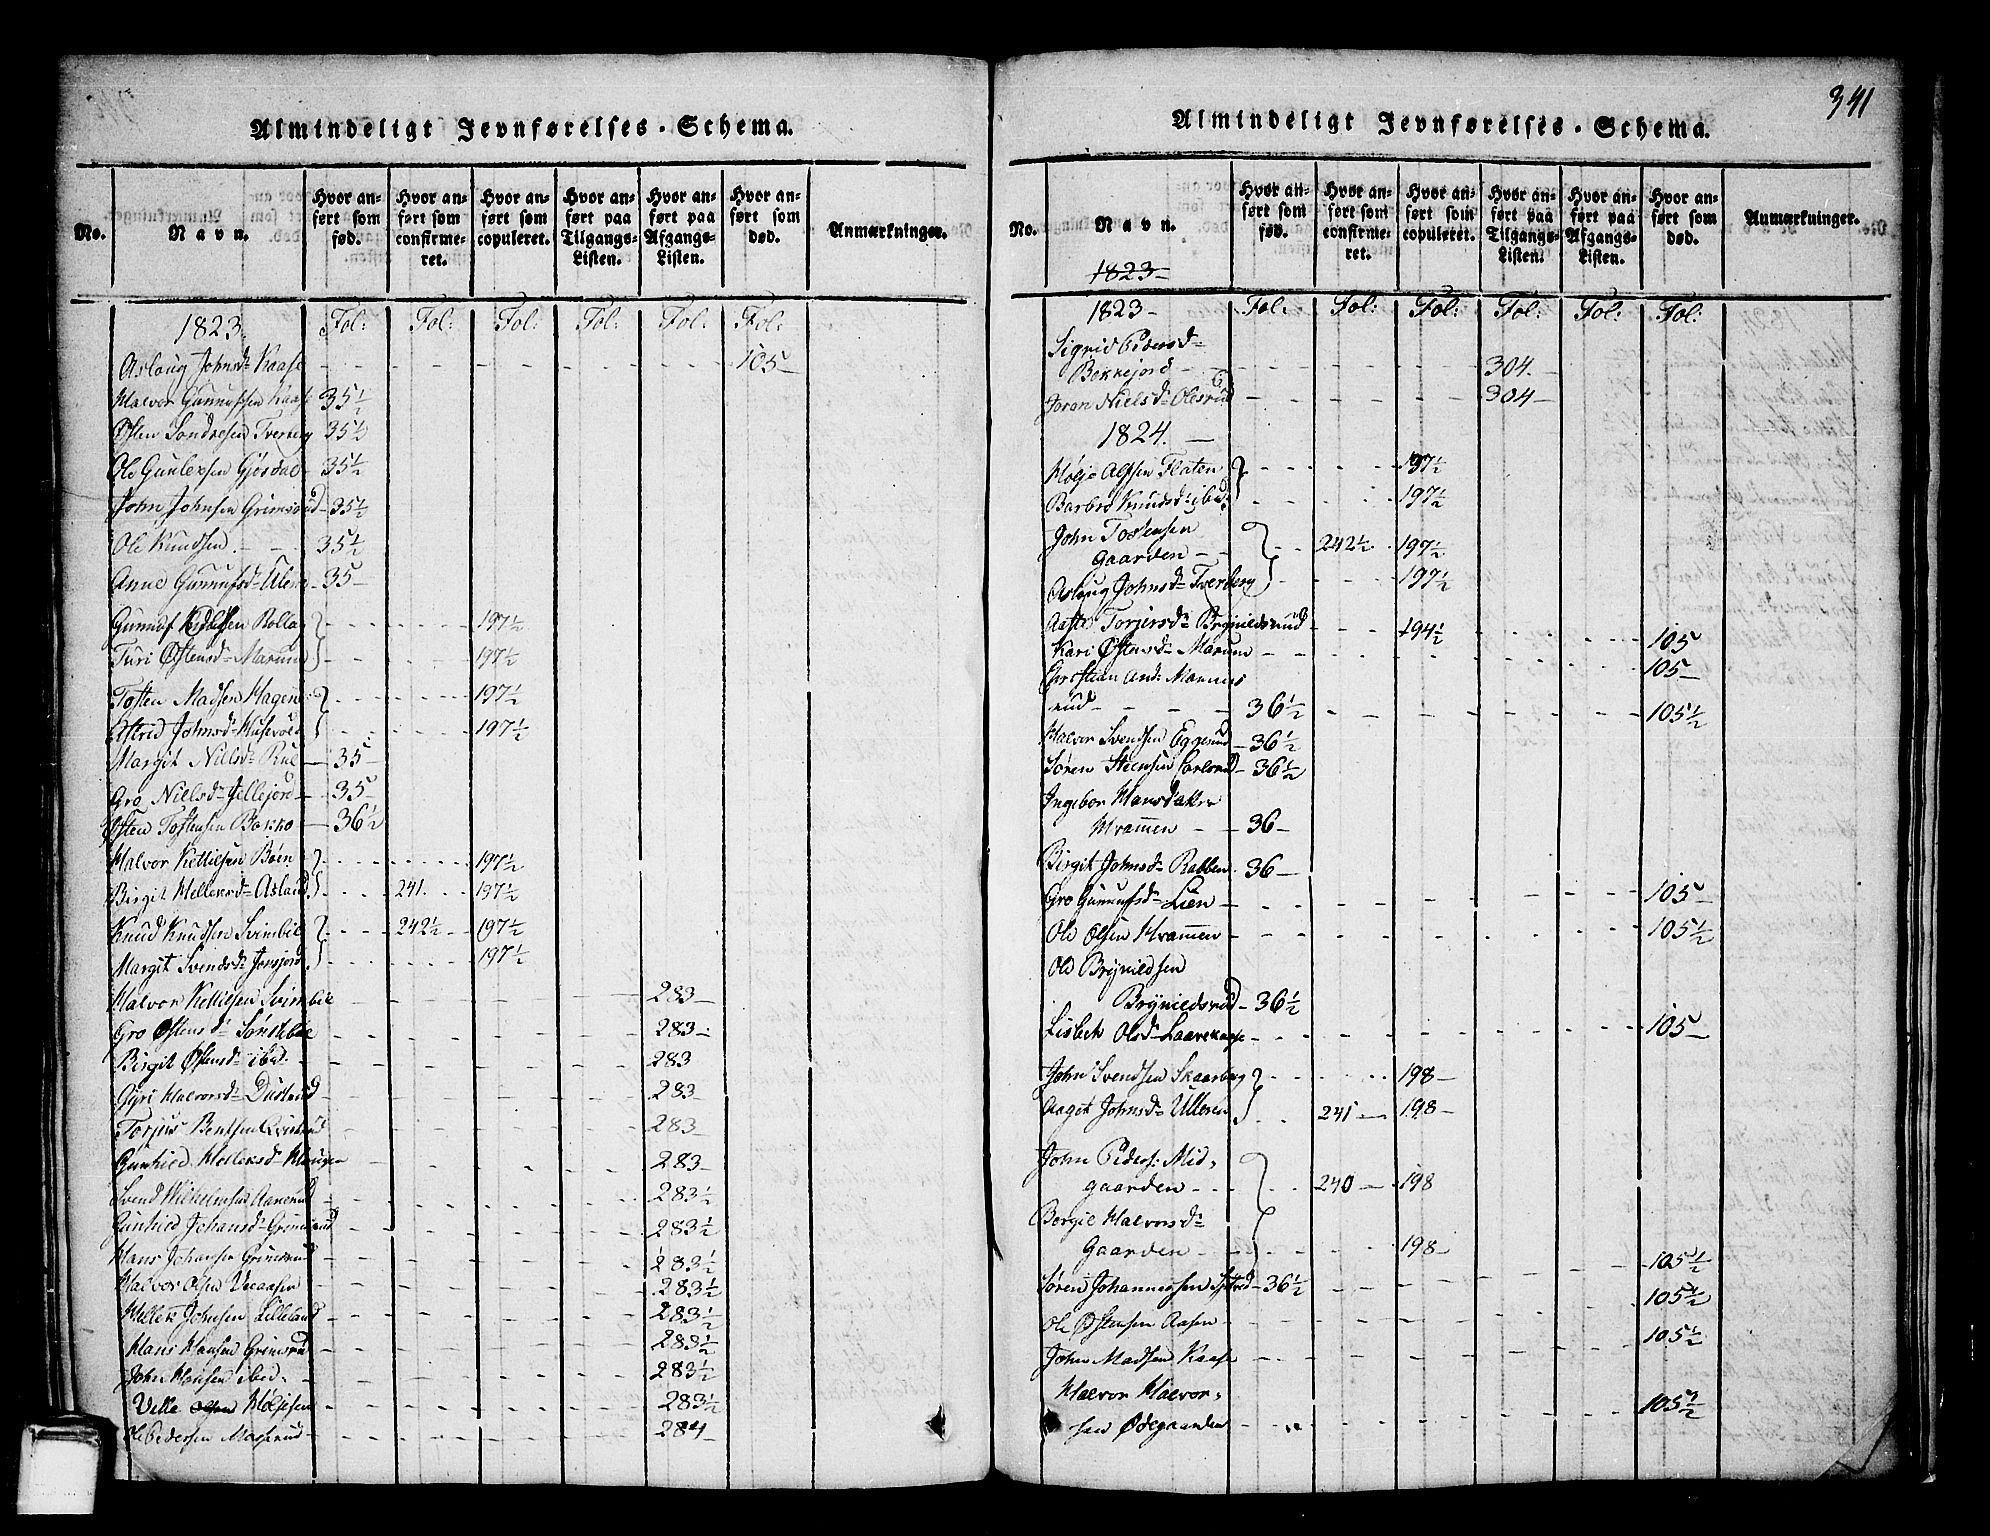 Almindeligt Jevnførelses-Schema.
No.
Navn.
Hvor anført som fød.
Hvor anført som confirmeret.
Hvor anført som copuleret.
Hvor anført paa Tilgangs-Listen.
Hvor anført paa Afgangs-Listen.
Hvor anført som død.
Anmærkninger.
1823. Fol: Fol: Fol: Fol: Fol: Fol:
Aslaug Johnsd. Kaase 105
Halvor Gunnufsen Kaase 35½
Østen Sondresen Tverberg 35½
Ole Gunlexen Gjøsdal 35½
John Johnsen Grimsrud 35½
Ole Knudsen 35½
Anne Gunnufsd. Ulen 35
Gunnuf Bollag 197½
Turi Østensd. Marum 197½
Tosten Madsen Hagen 197½
Astrid Johnsd. Husevold 197½
Margit Nielsd. Rue 35
Gro Nielsd. Jellejord 35
Østen Tostensen Bakko 36½
Halvor Kettilsen Bøen 197½
Birgit Hellexsd. Asland 241. 197½
Knud Knudsen Svimbil 242½ 197½
Margit Svendsd. Jonsjord 197½
Halvor Kettilsen Svimbil 283
Gro Østensd. Sønstebøe 283
Birgit Østensd. ibd. 283
Gyri Halvorsd. Dusland 283
Torjus Bentsen 283
Gunhild Helleksd. Haugen 283
Svend Wilhelmsen Aanerud 283½
Gunhild Johansd. Grimsrud 283½
Hans Johansen Grimsrud 283½
Halvor Olsen Vraasen 283½
Hellek Johnsen Lilleland 283½
Hans Hansen Grimsrud 283½
John Hansen ibd. 283½
Velle Høljesen 283½
Ole Pedersen Maserud 284
341
Almindeligt Jevnførelses-Schema.
No.
Navn.
1823
Hvor anført som fød.
Hvor anført som confirmeret.
Hvor anført som copuleret.
Hvor anført paa Tilgangs-Listen.
Hvor anført paa Afgangs-Listen.
Hvor anført som død.
Anmærkninger.
1823 Fol: Fol: Fol: Fol: Fol: Fol:
Sigrid Pedersd.
Bekkejord 304
Joran Nielsd. Olesrud 304
1824.
Hølje Alfsen Flaten 197½
Barbro Knudsd. ibd. 197½
John Tostensen
Gaarden 242½ 197½
Aslaug Johnsd. Tverberg 197½
Aaste Torjersd. Brynildsrud 194½
Kari Østensd. Marum 105
Christian And. Mannes 105
rud 36½ 105½
Halvor Svendsen Eggerud 36½
Søren Steensen Carlsrud 36½
Ingebor Hansd.
Hvammen 36
Birgit Johnsd. Rabben 36
Gro Gunnufsd. Lien 105
Ole Olsen Hvammen 105½
Ole Brynildsen
Brynildsrud 36½
Lisbeth Olsd. Laavekaase 105
John Svendsen Skaarberg 198
Aagot Johnsd. Ulleren 241 198
John Peders: Mid-
gaarden 240 198
Bergit Halvorsd.
Gaarden 198
Søren Johannessen 36½ 105½
Ole Østensen Aasen 105½
John Madsen Kaase 105½
Halvor Halvor-
sen Ødegaarden 105½